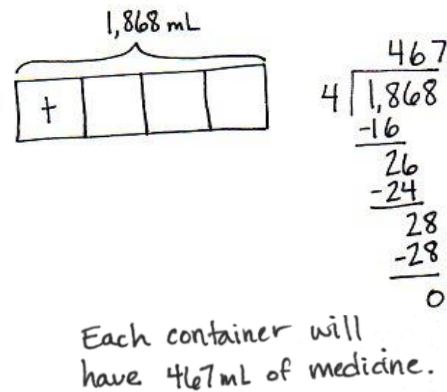 1,868 mL
t
467
4 1,868
-16
26
-24
28
-28
0
Each container will
have 467 mL of medicine.